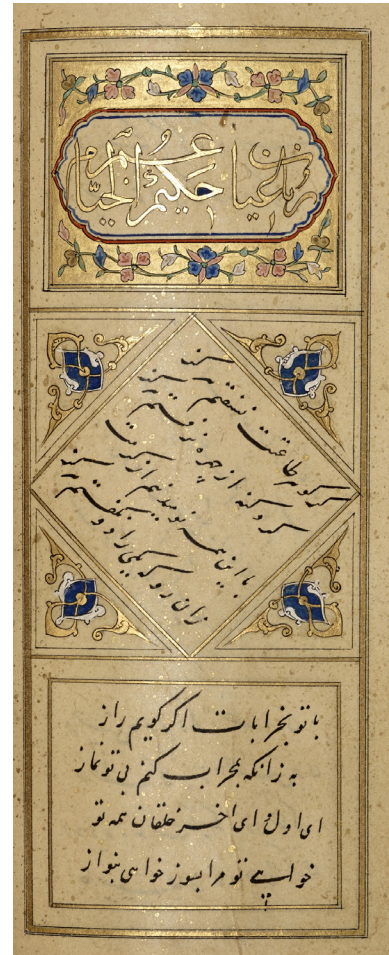 رباعیات حکیم عمر الخیام
گر گوهر طاعتت نسفتم هرگز
گرد گنه از چهره نرفتم هرگز
با این همه نومید نیم از کرمت
زان رو که یکی را دو نگفتم هرگز
با تو بخرابات اگر گویم راز
به زانکه بمحراب کنم بی تو نماز
ای اول و ای آخر خلقان همه تو
خواهی تو مرا بسوز خواهی بنواز